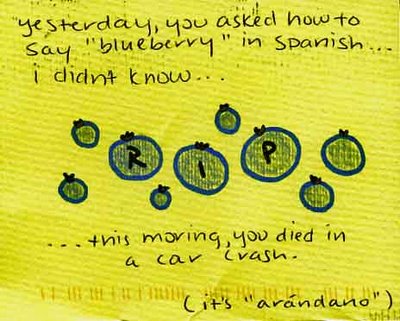 yesterday, you asked how to
say "blueberry" in spanish...
i didnt know...
R I P
...this moring, you died in
a car crash.
(it's "arándano")